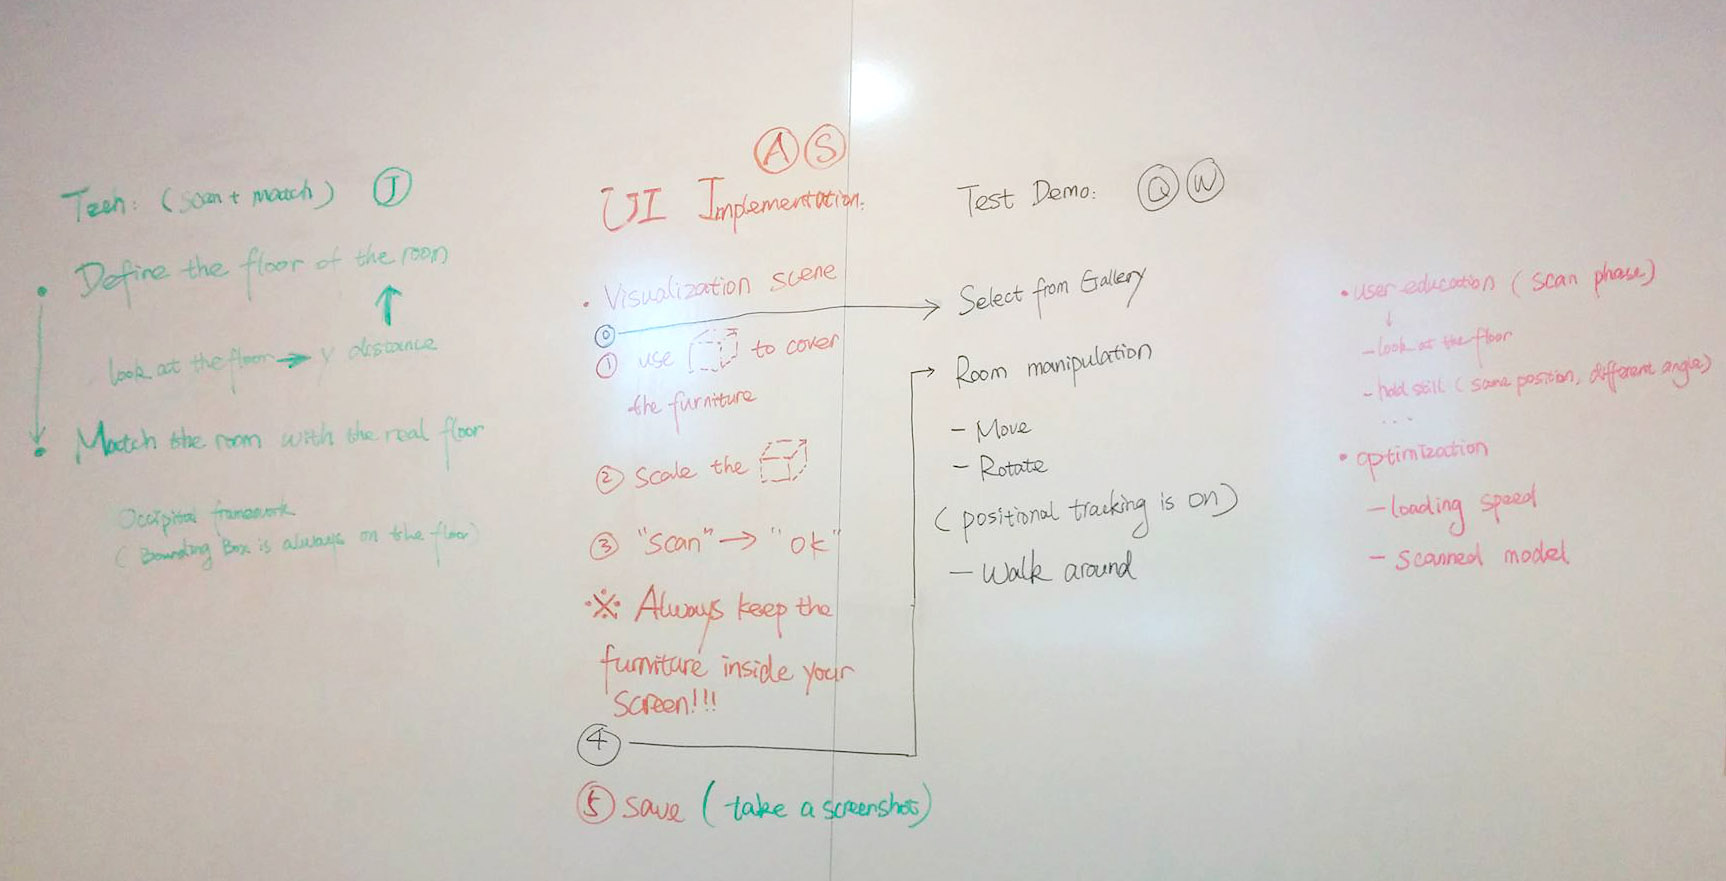 Tech: (scan + match) J
• Define the floor of the room
look at the floor → y distance
• Match the room with the real floor
Occipital framework
(Bounding Box is always on the floor)
A S
UI Implementation:
• Visualization scene
0
1 use to cover
the furniture
2 scale the
3 "scan" → "ok"
※ Always keep the
furniture inside your
screen!!!
4
5 save (take a screenshot)
Test Demo: Q W
Select from Gallery
Room manipulation
- Move
- Rotate
(positional tracking is on)
- Walk around
• user education (scan phase)
↓
- look at the floor
- hold still (same position, different angle)
...
• optimization
- loading speed
- scanned model